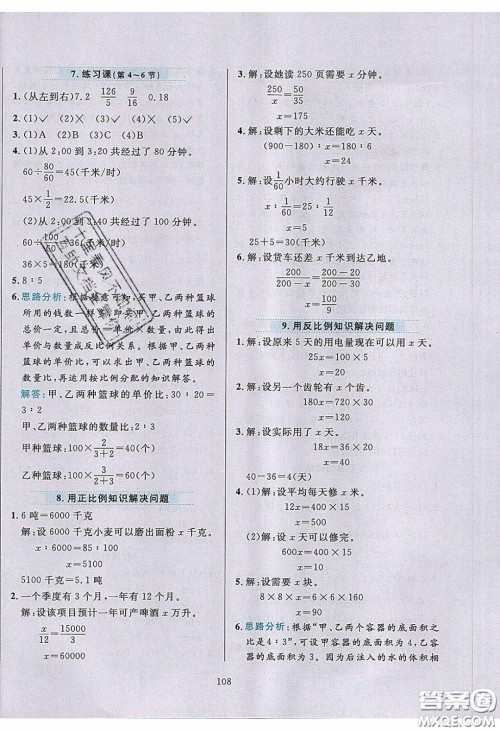 7. 练习课(第4~6节)
1. (从左到右)7.2 126/5 9/16 0.18
2. (1)√ (2)× (3)√ (4)×
3. (1)A (2)B (3)A (4)B
4. (1)从2:00到3:20共经过了80分钟。
60÷80/60=45(千米/时)
45×1/2=22.5(千米)
(2)从2:00到3:40共经过了100分钟。
60÷100/60=36(千米/时)
5. 8:5
6. 思路分析:根据题意可知,买甲、乙两种篮球
所用的钱数一样多,也就是甲、乙两种篮球的
总价一定,且总价一定时,篮球的单价与数量
成反比例关系。所以由甲、乙两种篮球的单价
比,可以求出甲、乙两种篮球的数量比,
再运用按比例分配的知识解答。
解答:甲、乙两种篮球的单价比:30:20=3:2
甲、乙两种篮球的数量比:2:3
甲种篮球:100×2/(2+3)=40(个)
乙种篮球:100×3/(2+3)=60(个)
8. 用正比例知识解决问题
1. 6吨=6000千克
解:设6000千克小麦可以磨出面粉x千克。
x:6000=85:100
x=5100
5100千克=5.1吨
2. 一个季度有3个月,一年有12个月。
解:设该项目预计一年可产啤酒x万升。
x/12=15000/3
x=60000
3. 解:设她读250页需要x分钟。
250/x=50/35
x=175
4. 解:设剩下的大米还能吃x天。
(900-180):x=180:6
x=24
5. 解:设1/60小时大约行驶x千米。
x:1/60=25:1/12
x=5
25+5=30(千米)
6. 解:设货车还差x千米到达乙地。
200/(200-20)=(200-x)/(200-29)
x=10
9. 用反比例知识解决问题
1. 解:设原来5天的用电量现在可以用x天。
25x=100×5
x=20
2. 解:设另一个齿轮有x个齿。
180x=90×36
x=18
3. 解:设实际用了x天。
20x=18×40
x=36
40-36=4(天)
4. (1)解:设平均每天修x米。
12x=400×15
x=500
(2)解:设x天可以修完。
600x=400×15
x=10
5. 解:设需要x块。
8×8×x=6×6×640
x=360
6. 思路分析:根据“甲、乙两个容器的底面积之
比是4:3”,可设甲容器的底面积为4,乙容器
的底面积为3。因为后注入的水的体积相
108
答案圈
MXQE.COM